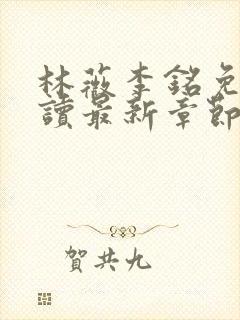 林薇李銘免
讀最新章節
賀共九